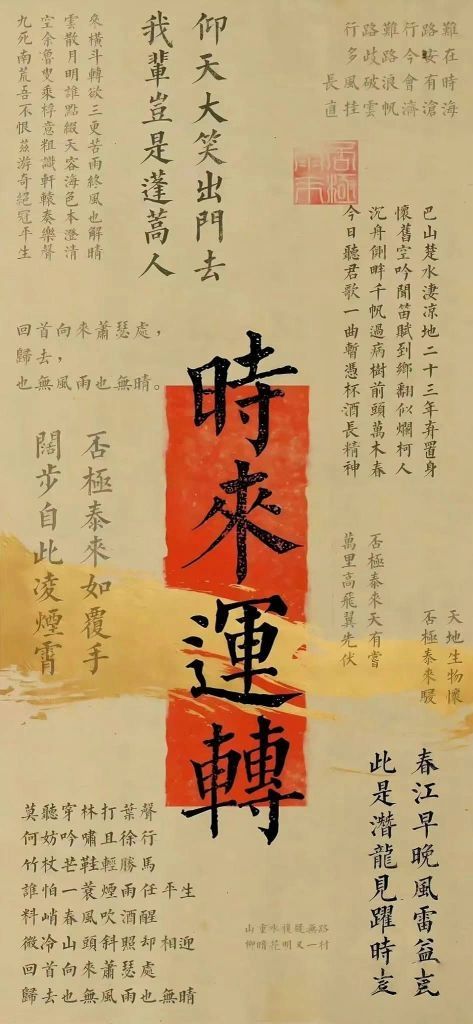 行路難行路難
多歧路今安在
長風破浪會有時
直挂雲帆濟滄海
仰天大笑出門去
我輩豈是蓬蒿人
來橫斗轉欲三更苦雨終風也解晴
雲散月明誰點綴天容海色本澄清
空余魯叟乘桴意粗識軒轅奏樂聲
九死南荒吾不恨茲游奇絕冠平生
巴山楚水淒凉地二十三年弃置身
懷舊空吟聞笛賦到鄉翻似爛柯人
沉舟側畔千帆過病樹前頭萬木春
今日聽君歌一曲暫憑杯酒長精神
回首向來蕭瑟處，
歸去，
也無風雨也無晴。
時來運轉
否極泰來如覆手
闊步自此凌煙霄
天地生物懷
否極泰來駸
否極泰來天有嘗
萬里高飛翼先伏
春江早晚風雷益
此是潛龍見躍時
莫聽穿林打葉聲
何妨吟嘯且徐行
竹杖芒鞋輕勝馬
誰怕一蓑煙雨任平生
料峭春風吹酒醒
微冷山頭斜照却相迎
回首向來蕭瑟處
歸去也無風雨也無晴
山重水複疑無路
柳暗花明又一村